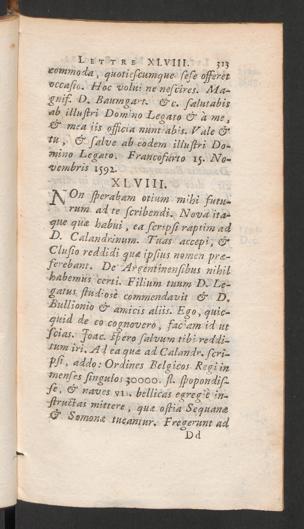 LETTRE XLVIII. 313
commoda, quotiescumque sese offeret
occasio. Hoc volui ne nescires. Ma-
gnif. D. Baumgart. &c. salutabis
ab illustri Domino Legato & à me,
& mea iis officia nuntiabis. Vale &
tu, & salve ab eodem illustri Do-
mino Legato. Francofurto 15. No-
vembris 1592.
XLVIII.
NOn sperabam otium mihi futu-
rum ad te scribendi. Nova ita-
que quæ habui, ea scripsi raptim ad
D. Calandrinum. Tuas accepi, &
Clusio reddidi quæ ipsius nomen præ-
ferebant. De Argentinensibus nihil
habemus certi. Filium tuum D. Le-
gatus studiosè commendavit & D.
Bullionio & amicis aliis. Ego, quic-
quid de eo cognovero, faciam id ut
scias. Joac. spero salvum tibi reddi-
tum iri. Ad ea quæ ad Calandr. scri-
psi, addo: Ordines Belgicos Regi in
menses singulos 30000. fl. spopondis-
se, & naves VI. bellicas egregiè in-
structas mittere, quæ ostia Sequanæ
& Somonæ tueantur. Fregerunt ad
Dd